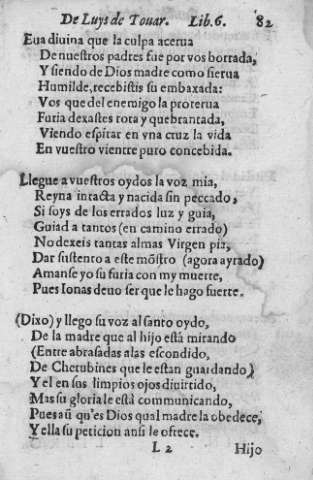 De Luys de Touar. Lib. 6. 82
Eua diuina que la culpa acerua
De nuestros padres fue por vos borrada,
Y siendo de Dios madre como sierua
Humilde, recebistis su embaxada:
Vos que del enemigo la proterua
Furia dexastes rota y quebrantada,
Viendo espirar en vna cruz la vida
En vuestro vientre puro concebida.
Llegue a vuestros oydos la voz mia,
Reyna intacta y nacida sin peccado,
Si soys de los errados luz y guia,
Guiad a tantos (en camino errado)
No dexeis tantas almas Virgen pia,
Dar sustento a este mõstro (agora ayrado)
Amanse yo su furia con my muerte,
Pues Ionas deuo ser que le hago fuerte.
(Dixo) y llego su voz al santo oydo,
De la madre que al hijo està mirando
(Entre abrasadas alas escondido,
De Cherubines que le estan guardando)
Y el en sus limpios ojos diuirtido,
Mas su gloria le està comunicando,
Pues aũ qu'es Dios qual madre la obedece,
Y ella su peticion ansi le ofrece.
L 2 Hijo